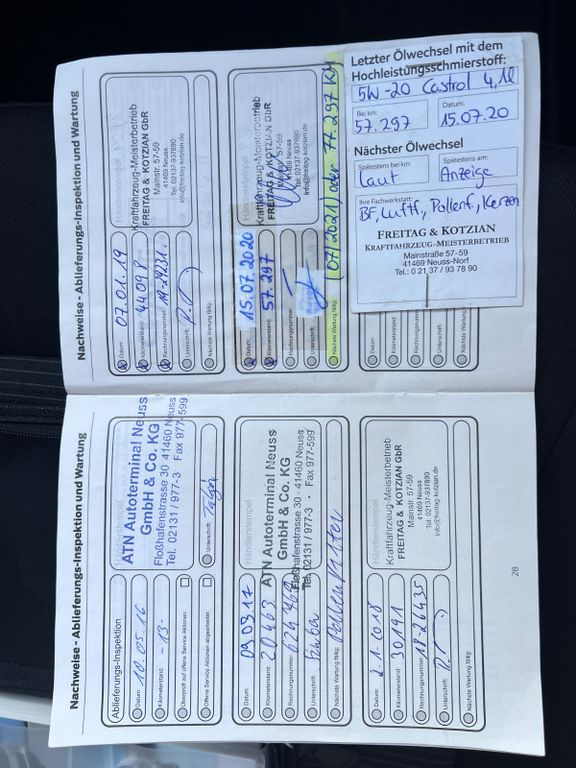 Nachweise - Ablieferungs-Inspektion und Wartung
Ablieferungs-Inspektion
Datum: 10.05.16
Kilometerstand: -13-
Überprüft auf offene Service Aktionen:
Offene Service Aktionen abgearbeitet:
ATN Autoterminal Neuss
GmbH & Co. KG
Floßhafenstrasse 30 41460 Neuss
Tel. 02131 / 977-3 Fax 977-599
Unterschrift:
Datum: 09.03.17
Kilometerstand: 20463
Rechnungsnummer:
Unterschrift:
Nächste Wartung fällig:
Händlerstempel
ATN Autoterminal Neuss
GmbH & Co. KG
Floßhafenstrasse 30 · 41460 Neuss
Tel. 02131 / 977-3 · Fax 977-599
Datum: 2.1.2018
Kilometerstand: 30191
Rechnungsnummer: 18-26435
Unterschrift:
Nächste Wartung fällig:
Händlerstempel
Kraftfahrzeug-Meisterbetrieb
FREITAG & KOTZIAN GbR
Mainstr. 57-59
41469 Neuss
Tel: 02137-937890
info@freitag-kotzian.de
28
Nachweise - Ablieferungs-Inspektion und Wartung
Datum: 07.01.19
Kilometerstand: 44098
Rechnungsnummer:
Unterschrift:
Nächste Wartung fällig:
Kraftfahrzeug-Meisterbetrieb
FREITAG & KOTZIAN GbR
Mainstr. 57-59
41469 Neuss
Tel: 02137-937890
info@freitag-kotzian.de
Datum: 15.07.2020
Kilometerstand: 57.297
Rechnungsnummer:
Unterschrift:
Nächste Wartung fällig: 07/2021 oder 77.297 KM
Kraftfahrzeug-Meisterbetrieb
FREITAG & KOTZIAN GbR
Mainstr. 57-59
41469 Neuss
Tel: 02137-937890
info@freitag-kotzian.de
Datum:
Kilometerstand:
Rechnungsnummer:
Unterschrift:
Nächste Wartung fällig:
Letzter Ölwechsel mit dem
Hochleistungsschmierstoff:
5W-20 Castrol 4,1l
Bei km: 57.297
Datum: 15.07.20
Nächster Ölwechsel
Spätestens bei km: Laut
Spätestens am: Anzeige
Ihre Fachwerkstatt:
BF, Luftf., Pollenf., Kerzen
FREITAG & KOTZIAN
KRAFTFAHRZEUG-MEISTERBETRIEB
Mainstraße 57-59
41469 Neuss-Norf
Tel.: 0 21 37 / 93 78 90